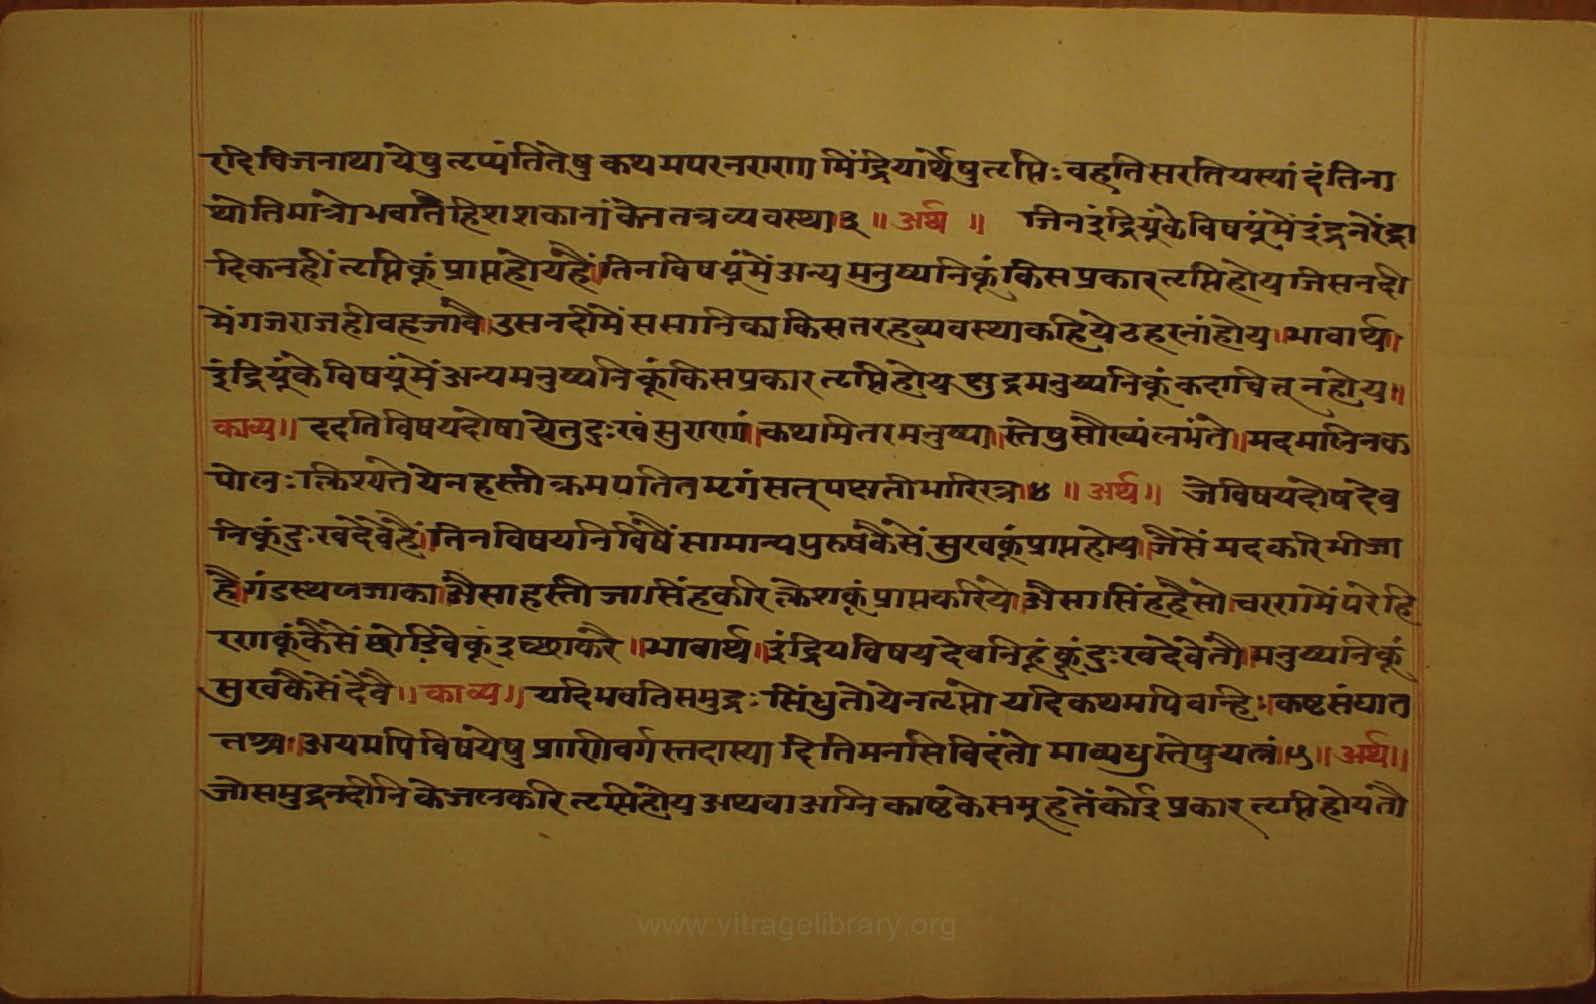 रदिविजनाथा येषु तृप्यंति तेषु कथमपरनराणामिंद्रियार्थेषु तृप्तिः वहति सरति यस्यां दंतिना
थोतिमात्रो भवति हि शशकानां केन तत्र व्यवस्था ३ ॥ अर्थ ॥ जिन इंद्रियूंके विषयूंमें इंद्र नरेंद्रा
दिक नहीं तृप्तिकूं प्राप्त होय है। तिन विषयूंमें अन्य मनुष्यनिकूं किस प्रकार तृप्ति होय जिस नदी
में गजराज ही वह जावै। उस नदीमें ससानिका किस तरह व्यवस्था कहिये ठहरनां होय॥ भावार्थ।
इंद्रियूंके विषयूंमें अन्य मनुष्यनिकूं किस प्रकार तृप्ति होय क्षुद्र मनुष्यनिकूं कदाचित् न होय॥
काव्य॥ ददति विषयदोषा येतु दुःखं सुराणां। कथमितर मनुष्या। स्तेषु सौख्यं लभंते॥ मदमलिनक
पोलः क्लिश्यते येन हस्ती क्रमपतित मृगं सत् पक्षतीभारिरत्र। ४ ॥ अर्थ॥ जे विषयदोष देव
निकूं दुःख देवे है। तिन विषयनिविषैं सामान्य पुरुष कैसें सुखकूं प्राप्त होय। जैसें मदकरि भीजा
है। गंडस्थल जाका। ऐसा हस्ती जा सिंहकरि क्लेशकूं प्राप्त करिये। ऐसा सिंह है सो। चरणमें परे हि
रणकूं कैसें छोडिवेकूं इच्छा करै॥ भावार्थ॥ इंद्रियविषय देवनिहूंकूं दुःख देवे तौ। मनुष्यनिकूं
सुख कैसें देवै॥ काव्य॥ यदि भवति समुद्रः सिंधुतोयेन तृप्तो यदि कथमपि वन्हिः। काष्ठसंघात
तश्च। अयमपि विषयेषु प्राणीवर्गस्तदास्या दिति मनसि विदंतो मा व्यधुस्तेषु यत्नं। ५॥ अर्थ॥
जो समुद्र नदीनिके जलकरि तृप्ति होय अथवा अग्नि काष्ठके समूहतें कोई प्रकार तृप्ति होय तौ
www.vitragelibrary.org